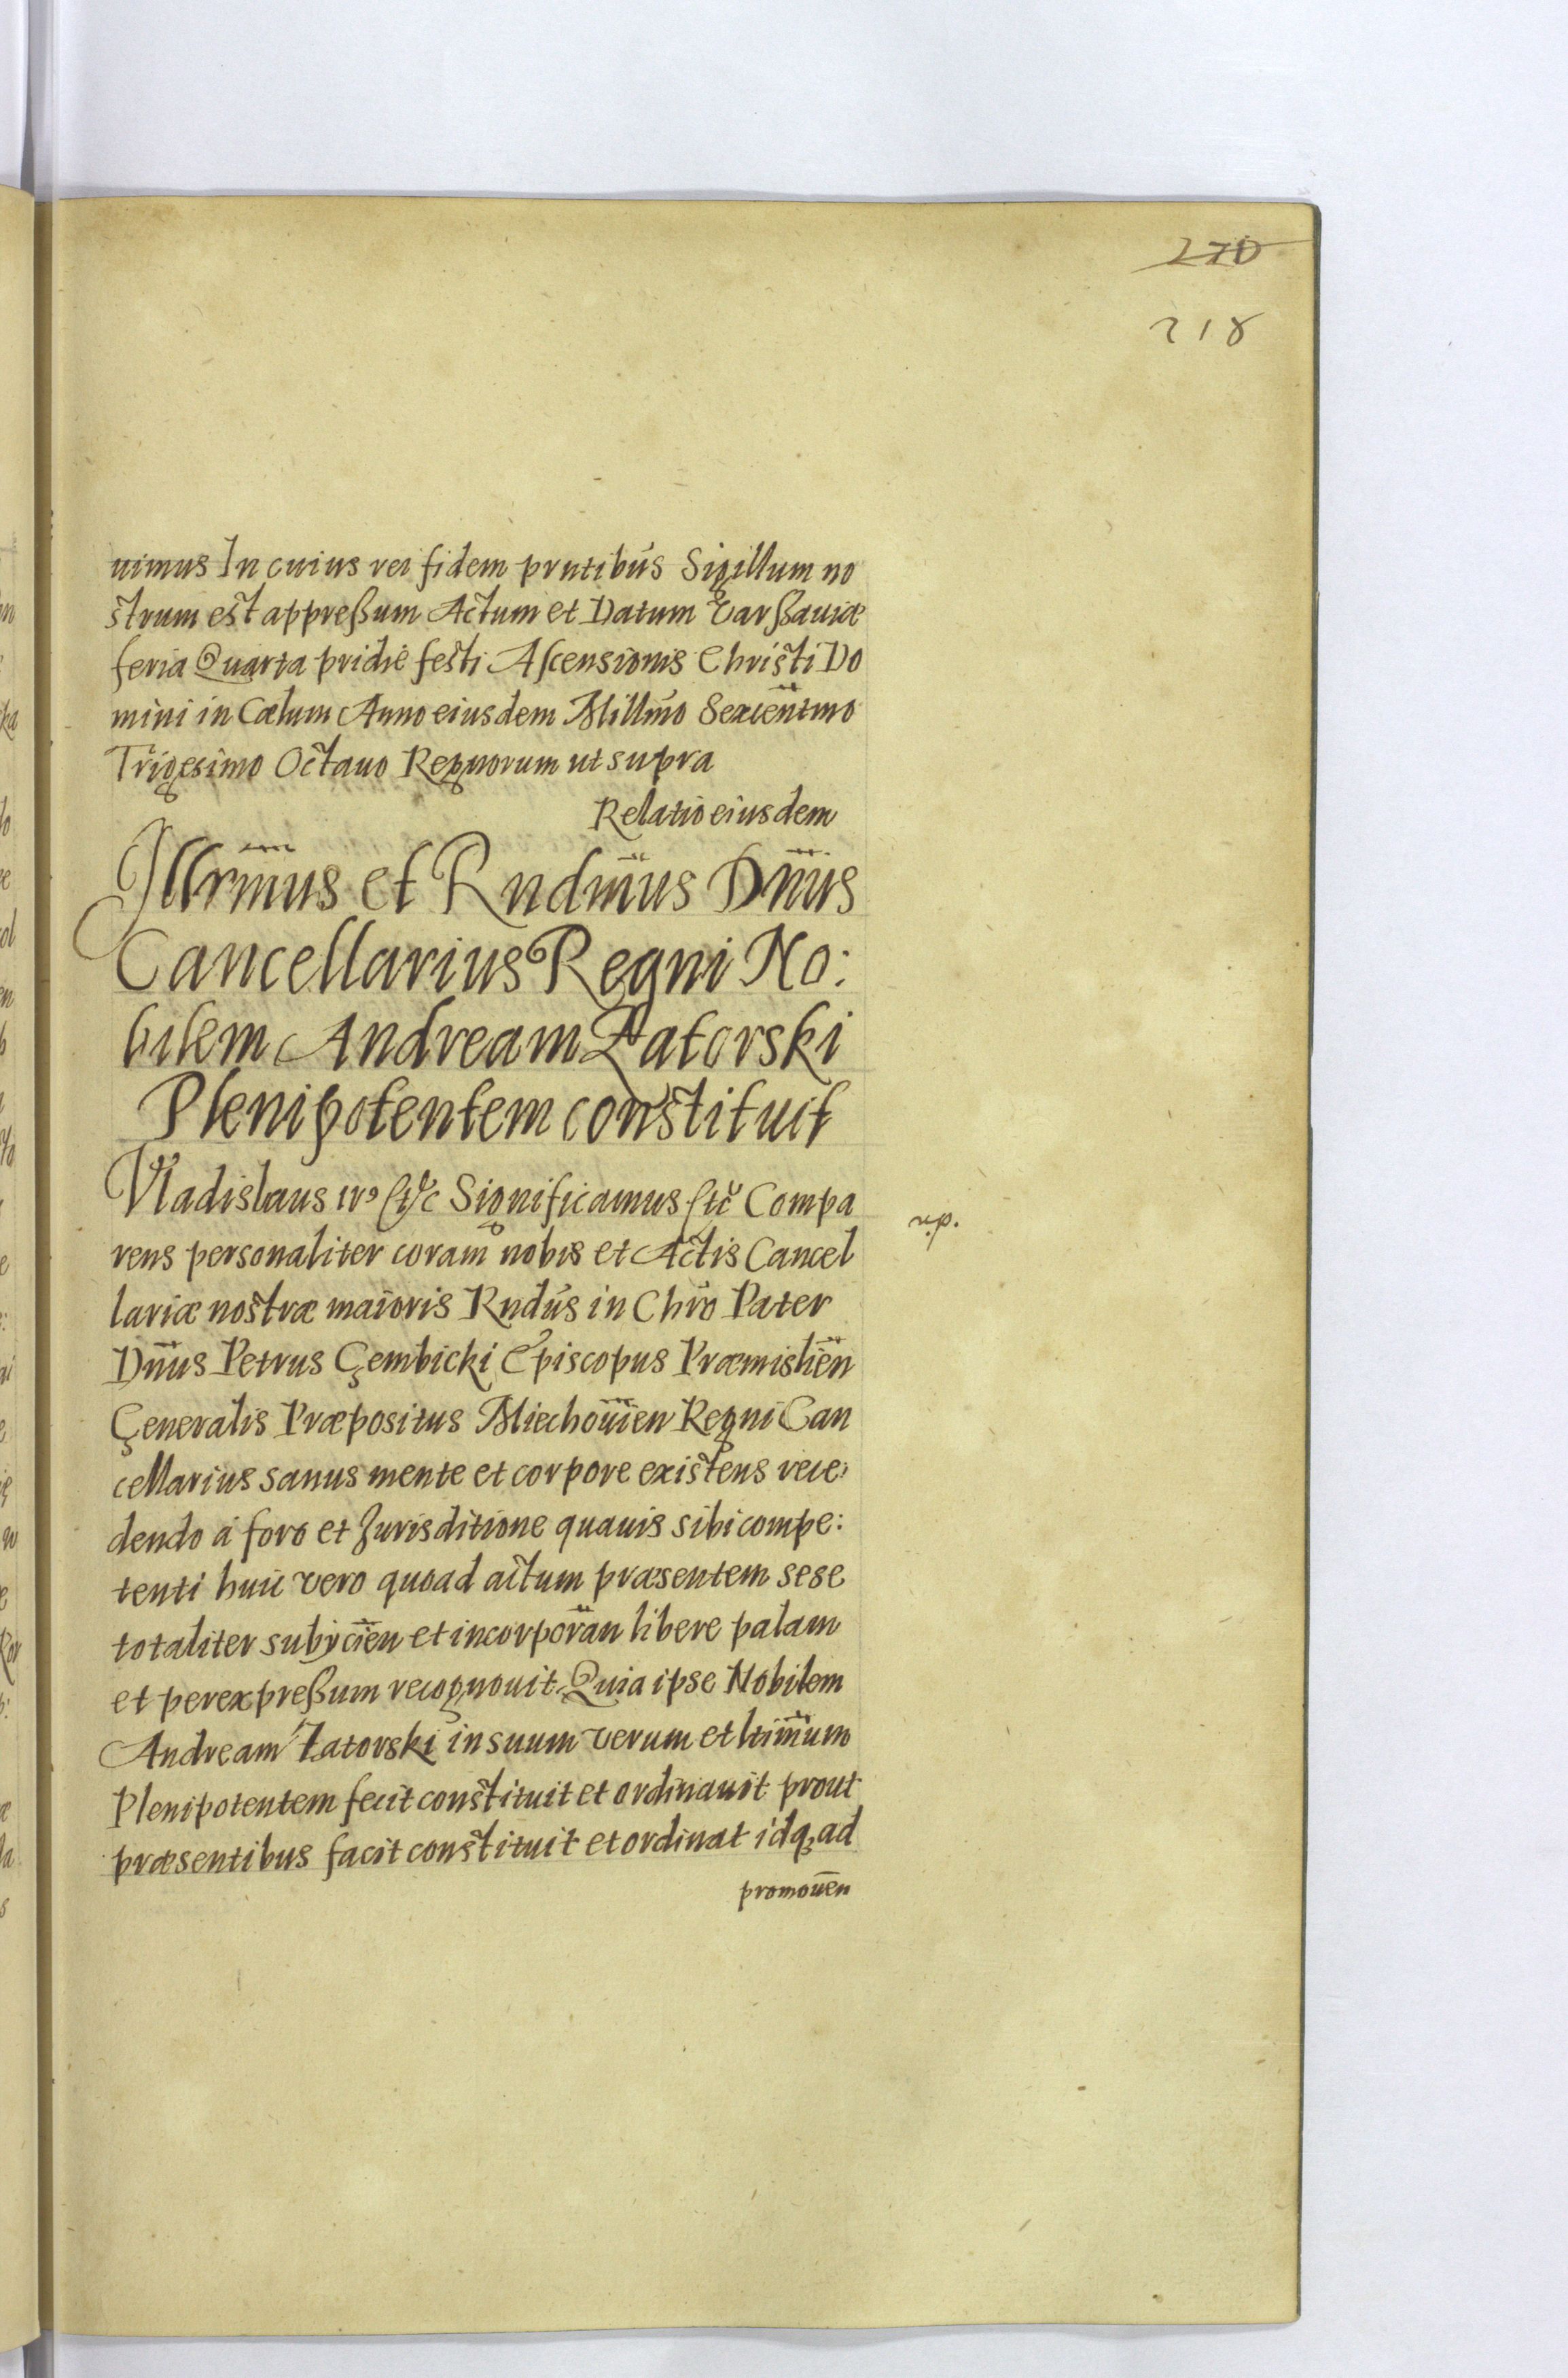 270
218
uimus In cuius rei fidem prntibus Sigillum no
strum est appreßum Actum et Datum Varßauiæ
feria Quarta pridie festi Ascensionis Christi Do
mini in Cœlum Anno eiusdem Millmo Sexcentmo
Trigesimo Octauo Regnorum ut supra
Relatio eiusdem
Illrmus et Rndmus Dnus
Cancellarius Regni No:
bilem Andream Zatorski
Plenipotentem constituit
Vladislaus IVs etc Significamus etc Compa
rens personaliter coram nobis et Actis Cancel
lariæ nostræ maioris Rndus in Chro Pater
Dnus Petrus Gembicki Episcopus Præmislien
Generalis Præpositus Miechouien Regni Can
cellarius sanus mente et corpore existens rece:
dendo á foro et Jurisditione quauis sibi compe:
tenti huic vero quoad actum præsentem sese
totaliter subijcien et incorporan libere palam
et per expreßum recognouit Quia ipse Nobilem
Andream Zatorski in suum verum et ltimum
Plenipotentem fecit constituit et ordinauit prout
præsentibus facit constituit et ordinat idq; ad
promouen